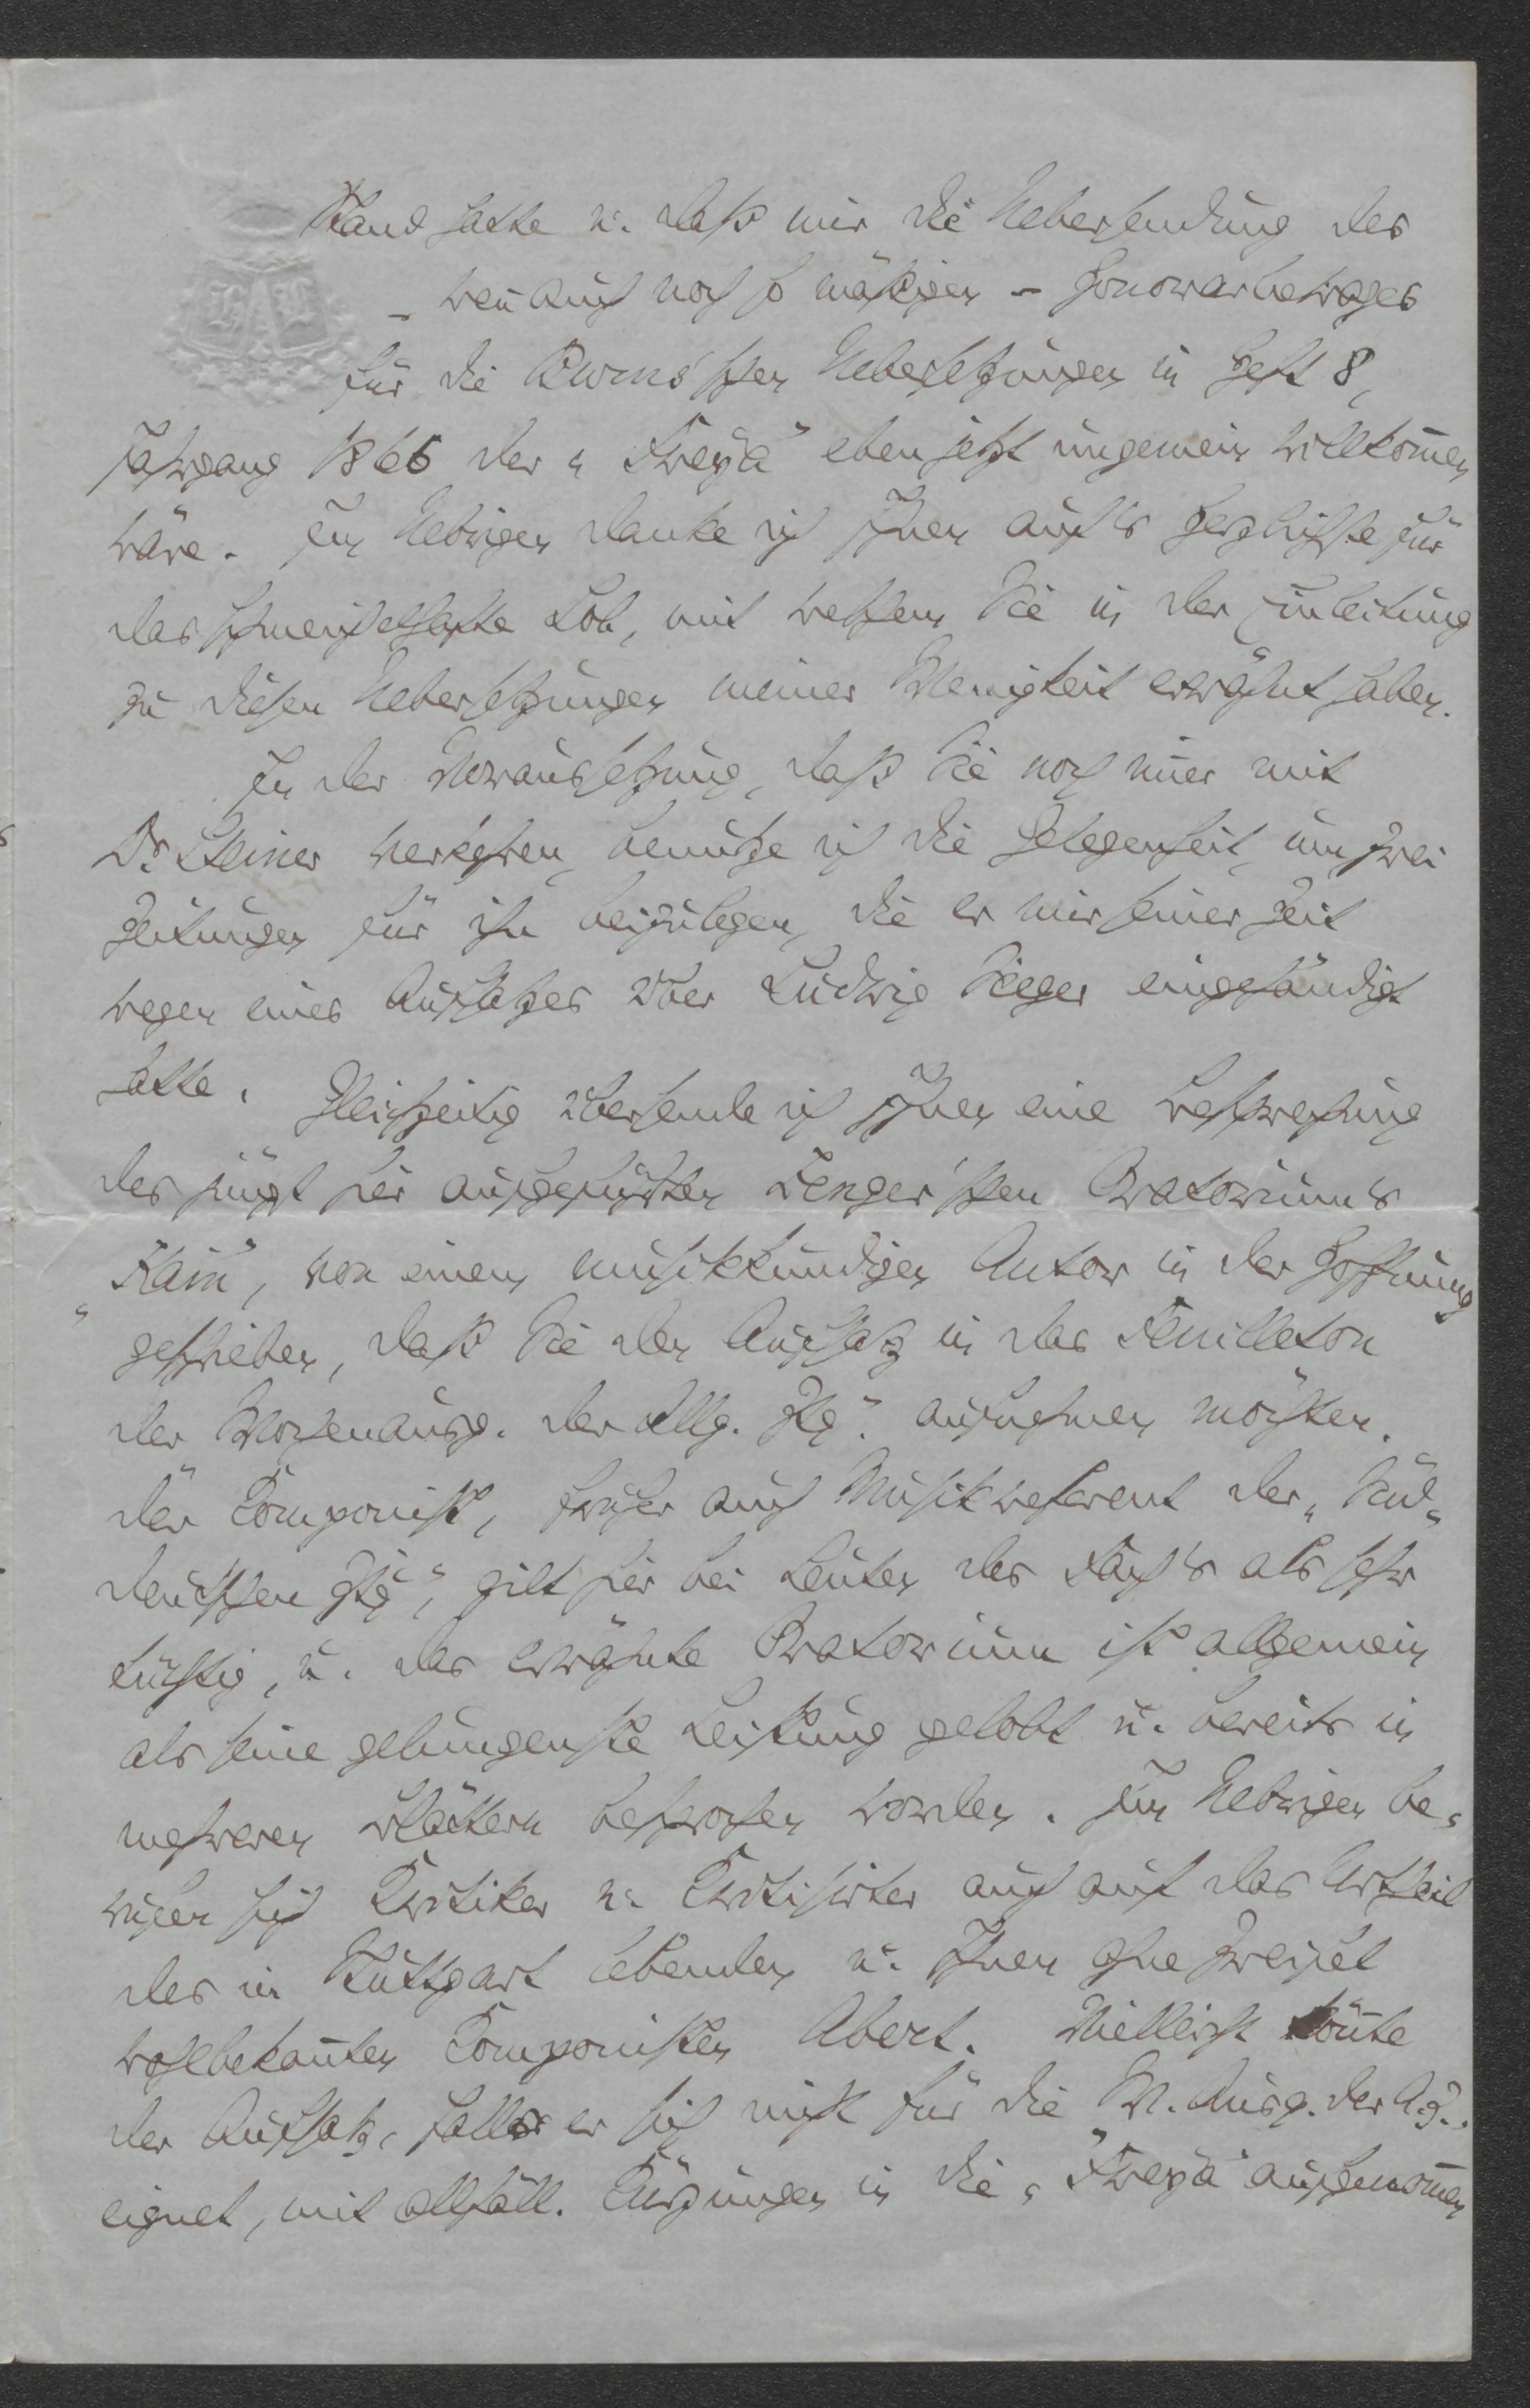 Stand hatte u. daß mir die Uebersendung des
– weñ auch noch so mäßigen – Honorarbetrages
für die Burns'schen Uebersetzungen in Heft 8,
Jahrgang 1866 der „Freya“ eben jetzt ungemein willkom̄en
wäre. Im Uebrigen danke ich Ihnen auf's herzlichste für
das schmeichelhafte Lob, mit welchem Sie in der Einleitung
zu diesen Uebersetzungen meiner Wenigkeit erwähnt haben.
In der Voraussetzung, daß Sie noch im̄er mit
Dr Steiner verkehren, benutze ich die Gelegenheit, um zwei
Zeitungen für ihn beizulegen, die er mir seiner Zeit
wegen eines Aufsatzes über Ludwig Seeger eingehändigt
hatte. Gleichzeitig übersende ich Ihnen eine Besprechung
des jüngst hier aufgeführten Zenger'schen Oratorium's
„Kain“, von einem musikkundigen Autor in der Hoffnung
geschrieben, daß Sie den Aufsatz in das Feuilleton
der „Wochenausg. der Allg. Ztg.“ aufnehmen möchten.
Der Componist, früher auch Musikreferent der „Süd-
deutschen Ztg“, gilt hier bei Leuten des Fach's als sehr
tüchtig, u. das erwähnte Oratorium ist allgemein
als seine gelungenste Leistung gelobt u. bereits in
mehreren Blättern besprochen worden. Im Uebrigen be-
rufen sich Kritiker u. Kritisirter auch auf das Urtheil
des in Stuttgart lebenden u. Ihnen ohne Zweifel
wohlbekañten Componisten Abert. Vielleicht köñte
der Aufsatz, falls er sich nicht für die W. Ausg. der A. Z.
eignet, mit allfäll. Kürzungen in die „Freya“ aufgenom̄en